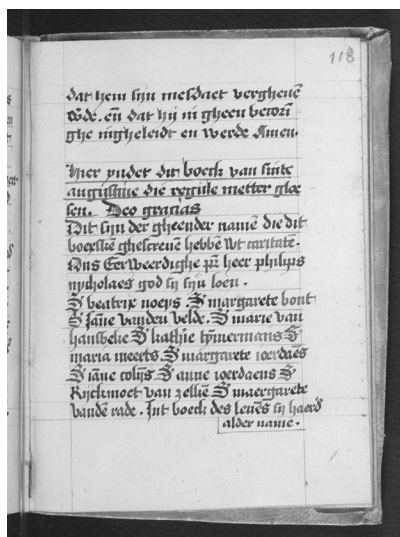 118
dat hem sijn mesdaet vergheuē
wde. eñ dat hij in gheen becorī
ghe ingheleidt en werde Amen.
Hier yndet dit boeck van sinte
augustijne die regule metter gloe
sen. Deo gracias
Dit sijn der gheender namē die dit
boecxkiē ghescreuē hebbē wt caritate.
Ons Eerweerdighe pr̄ heer philips
nycholaes god sy sijn loen.
S beatrix noeys. S margarete bont
S Jāne vanden velde. S marie van
hansbeke S kath̄ie tȳmermans S
maria meerts. S margarete ioerdaēs
S iāne colijs S anne ioerdaens S
Rijckmoet van zelliē S maergarete
vandē rade. Int boeck des leuēs sy haerd
alder name.